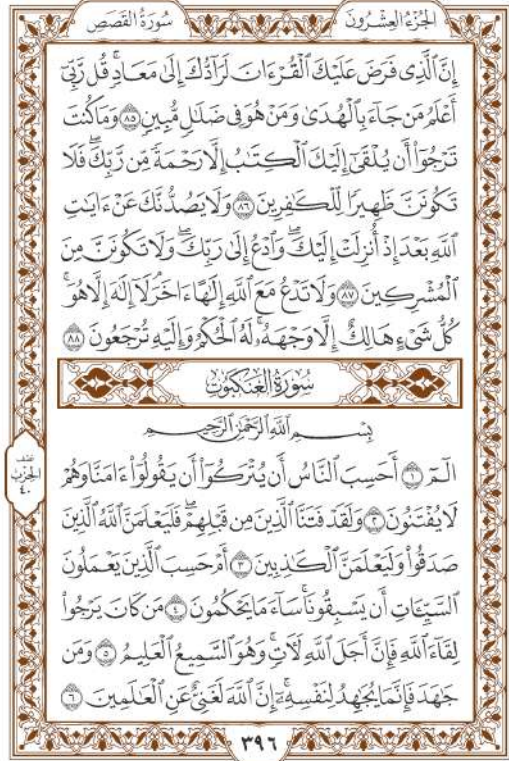 الجُزْءُ العِشْرُونَ
سُورَةُ القَصَصِ
إِنَّ ٱلَّذِى فَرَضَ عَلَيْكَ ٱلْقُرْءَانَ لَرَآدُّكَ إِلَىٰ مَعَادٍۚ قُل رَّبِّىٓ
أَعْلَمُ مَن جَآءَ بِٱلْهُدَىٰ وَمَنْ هُوَ فِى ضَلَٰلٍ مُّبِينٍ ۝٨٥ وَمَا كُنتَ
تَرْجُوٓا۟ أَن يُلْقَىٰٓ إِلَيْكَ ٱلْكِتَٰبُ إِلَّا رَحْمَةً مِّن رَّبِّكَۖ فَلَا
تَكُونَنَّ ظَهِيرًا لِّلْكَٰفِرِينَ ۝٨٦ وَلَا يَصُدُّنَّكَ عَنْ ءَايَٰتِ
ٱللَّهِ بَعْدَ إِذْ أُنزِلَتْ إِلَيْكَۖ وَٱدْعُ إِلَىٰ رَبِّكَۖ وَلَا تَكُونَنَّ مِنَ
ٱلْمُشْرِكِينَ ۝٨٧ وَلَا تَدْعُ مَعَ ٱللَّهِ إِلَٰهًا ءَاخَرَۘ لَآ إِلَٰهَ إِلَّا هُوَۚ
كُلُّ شَىْءٍ هَالِكٌ إِلَّا وَجْهَهُۥۚ لَهُ ٱلْحُكْمُ وَإِلَيْهِ تُرْجَعُونَ ۝٨٨
سُورَةُ العَنكَبُوتِ
بِسْمِ ٱللَّهِ ٱلرَّحْمَٰنِ ٱلرَّحِيمِ
الٓمٓ ۝١ أَحَسِبَ ٱلنَّاسُ أَن يُتْرَكُوٓا۟ أَن يَقُولُوٓا۟ ءَامَنَّا وَهُمْ
لَا يُفْتَنُونَ ۝٢ وَلَقَدْ فَتَنَّا ٱلَّذِينَ مِن قَبْلِهِمْۖ فَلَيَعْلَمَنَّ ٱللَّهُ ٱلَّذِينَ
صَدَقُوا۟ وَلَيَعْلَمَنَّ ٱلْكَٰذِبِينَ ۝٣ أَمْ حَسِبَ ٱلَّذِينَ يَعْمَلُونَ
ٱلسَّيِّـَٔاتِ أَن يَسْبِقُونَاۚ سَآءَ مَا يَحْكُمُونَ ۝٤ مَن كَانَ يَرْجُوا۟
لِقَآءَ ٱللَّهِ فَإِنَّ أَجَلَ ٱللَّهِ لَءَاتٍۚ وَهُوَ ٱلسَّمِيعُ ٱلْعَلِيمُ ۝٥ وَمَن
جَٰهَدَ فَإِنَّمَا يُجَٰهِدُ لِنَفْسِهِۦٓۚ إِنَّ ٱللَّهَ لَغَنِىٌّ عَنِ ٱلْعَٰلَمِينَ ۝٦
نصف
الحزب
٤٠
٣٩٦